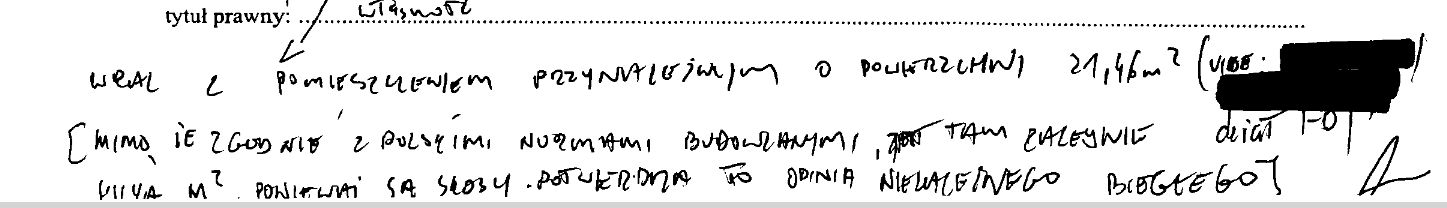 tytuł prawny: własność
WRAZ Z POMIESZCZENIEM PRZYNALEŻNYM O POWIERZCHNI 21,46 m² (VIDE:
[MIMO, ŻE ZGODNIE Z POLSKIMI NORMAMI BUDOWLANYMI, TAM ZALEDWIE dział I-O)
KILKA M², PONIEWAŻ SĄ SKOSY. POTWIERDZA TO OPINIA NIEZALEŻNEGO BIEGŁEGO]